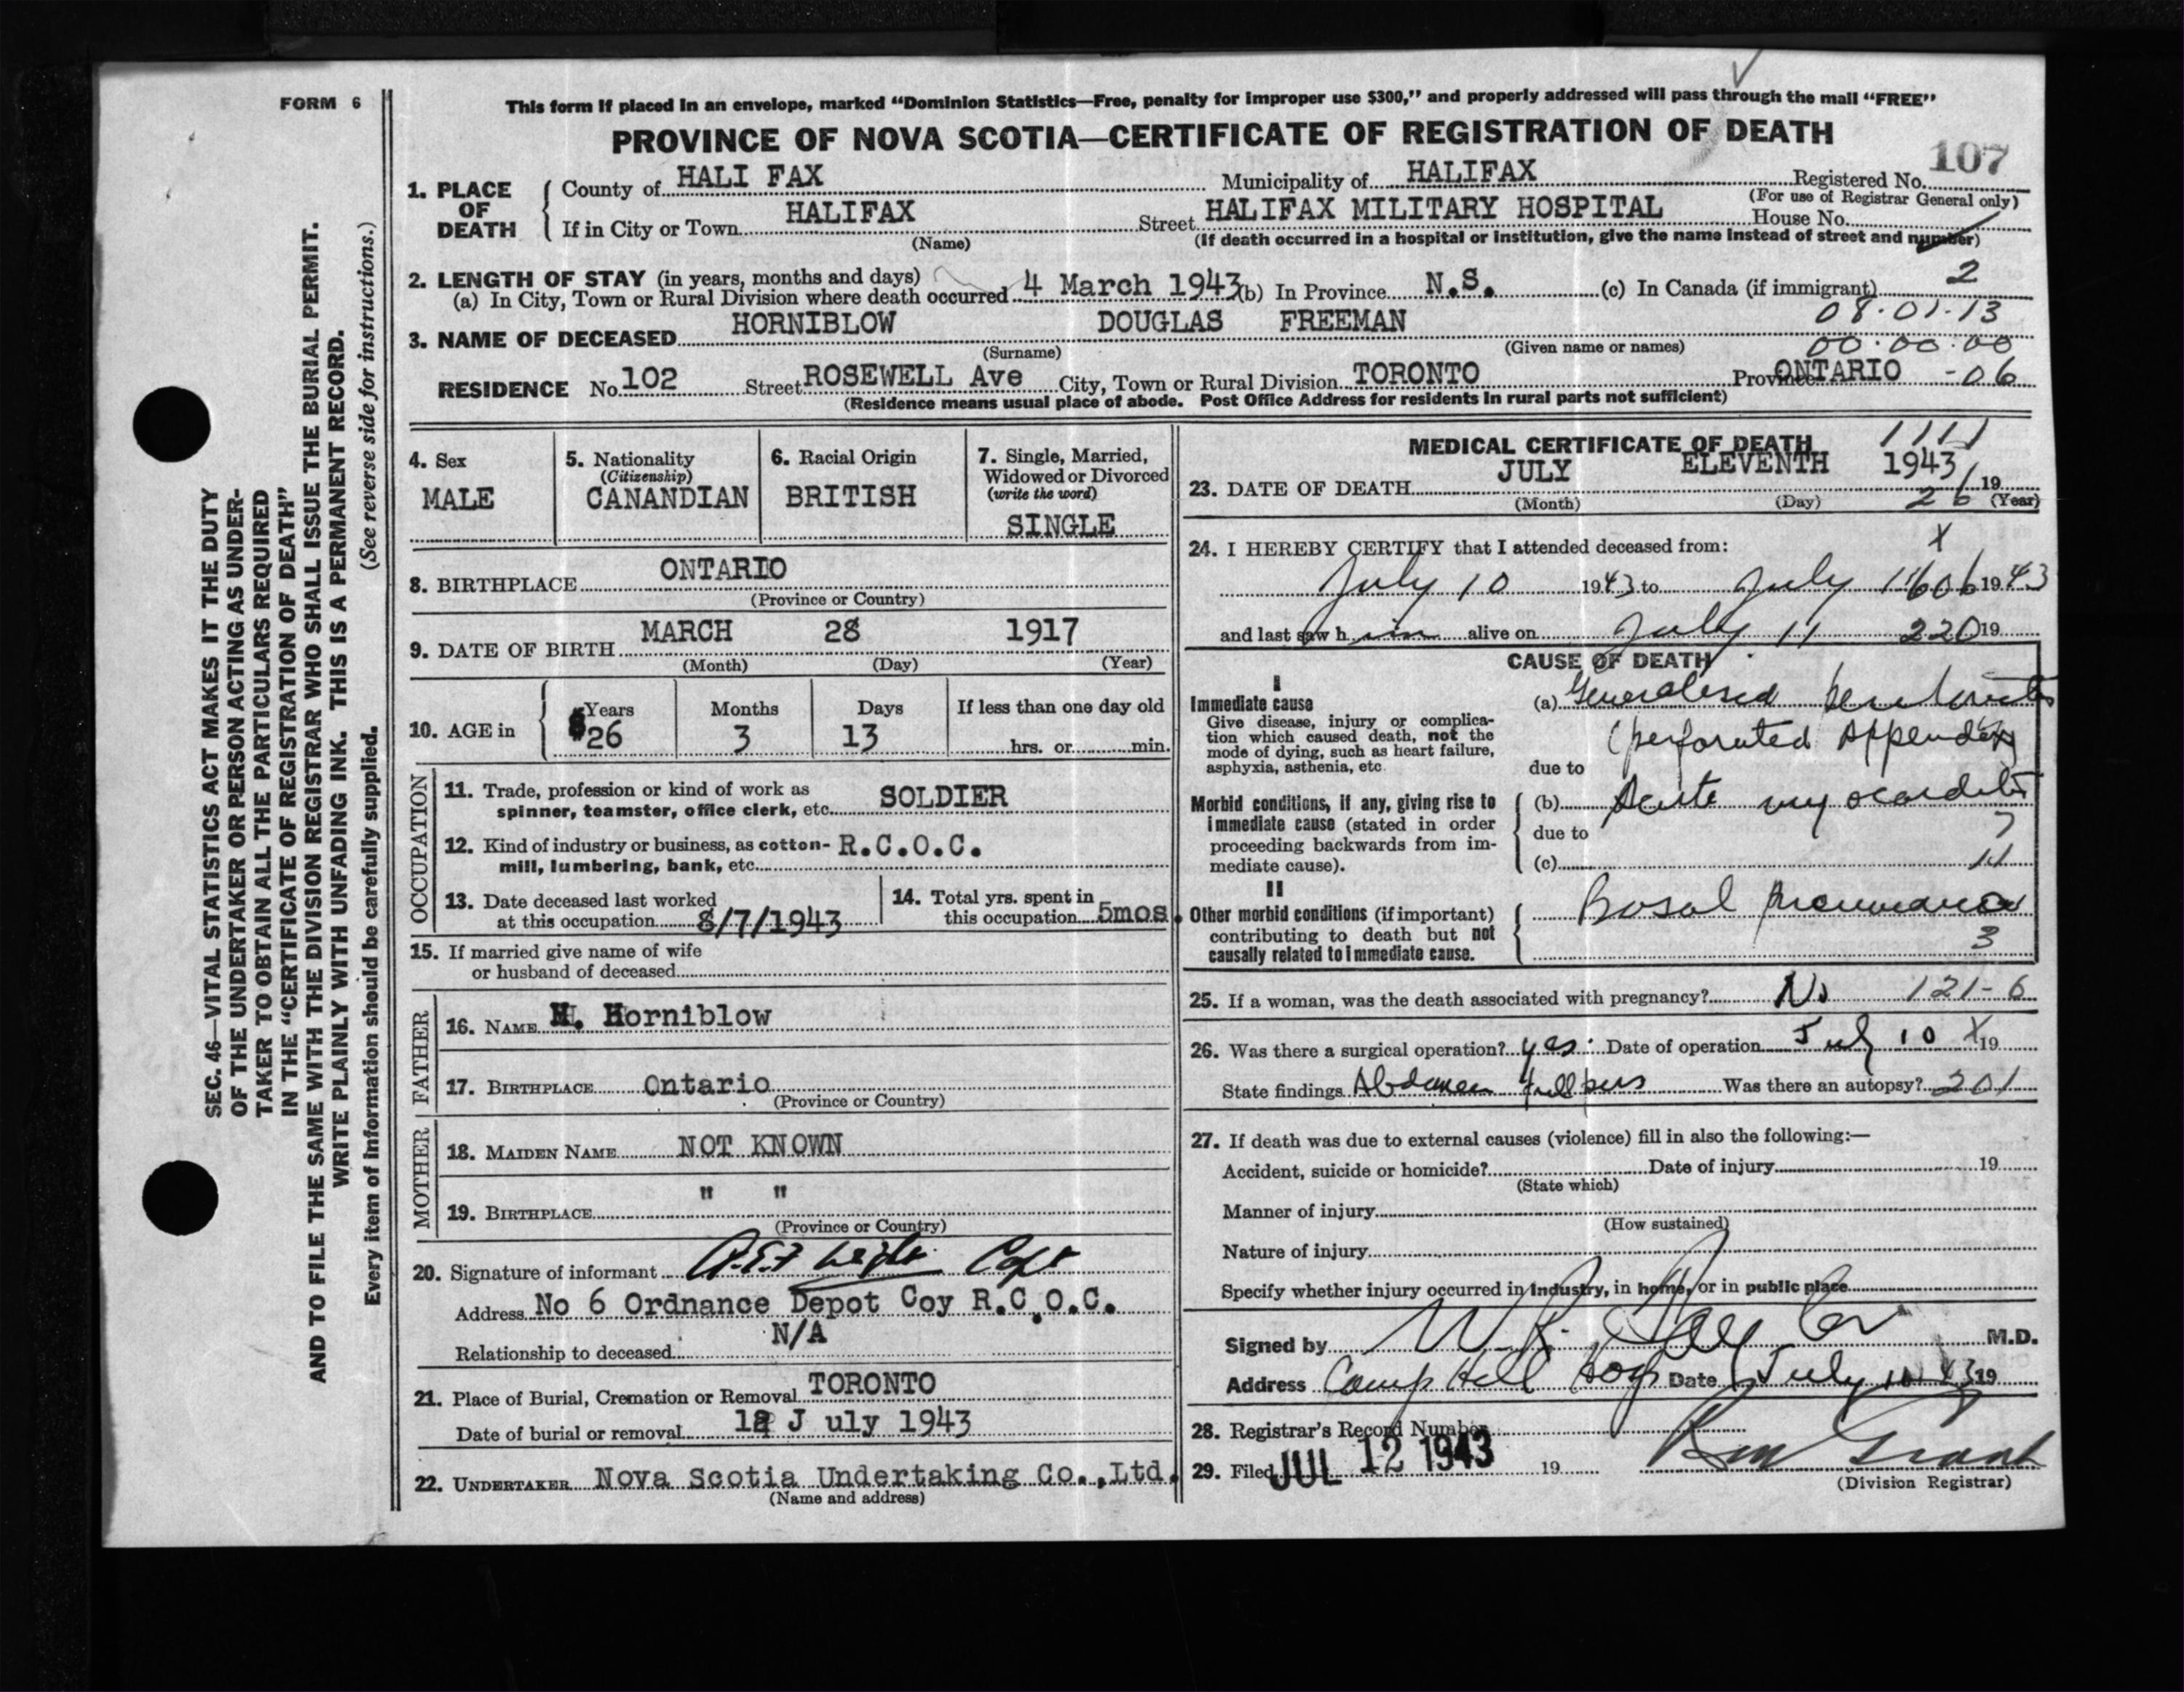 FORM 6
This form if placed in an envelope, marked “Dominion Statistics—Free, penalty for improper use $300,” and properly addressed will pass through the mail “FREE”
PROVINCE OF NOVA SCOTIA—CERTIFICATE OF REGISTRATION OF DEATH
107
1. PLACE OF DEATH
County of HALI FAX Municipality of HALIFAX Registered No.
(For use of Registrar General only)
If in City or Town HALIFAX Street HALIFAX MILITARY HOSPITAL House No.
(Name) (If death occurred in a hospital or institution, give the name instead of street and number)
2. LENGTH OF STAY (in years, months and days) 2
(a) In City, Town or Rural Division where death occurred 4 March 1943 (b) In Province N.S. (c) In Canada (if immigrant)
08·01·13
3. NAME OF DECEASED HORNIBLOW DOUGLAS FREEMAN
(Surname) (Given name or names) 00·00·00
RESIDENCE No. 102 Street ROSEWELL Ave City, Town or Rural Division TORONTO Province ONTARIO -06
(Residence means usual place of abode. Post Office Address for residents in rural parts not sufficient)
4. Sex
MALE
5. Nationality
(Citizenship)
CANANDIAN
6. Racial Origin
BRITISH
7. Single, Married,
Widowed or Divorced
(write the word)
SINGLE
8. BIRTHPLACE ONTARIO
(Province or Country)
9. DATE OF BIRTH MARCH 28 1917
(Month) (Day) (Year)
10. AGE in Years Months Days If less than one day old
26 3 13 hrs. or min.
OCCUPATION
11. Trade, profession or kind of work as
spinner, teamster, office clerk, etc. SOLDIER
12. Kind of industry or business, as cotton-
mill, lumbering, bank, etc. R.C.O.C.
13. Date deceased last worked
at this occupation 8/7/1943
14. Total yrs. spent in
this occupation 5mos.
15. If married give name of wife
or husband of deceased
FATHER
16. NAME H. Horniblow
17. BIRTHPLACE Ontario
(Province or Country)
MOTHER
18. MAIDEN NAME NOT KNOWN
19. BIRTHPLACE " "
(Province or Country)
20. Signature of informant Capt
Address No 6 Ordnance Depot Coy R.C.O.C.
Relationship to deceased N/A
21. Place of Burial, Cremation or Removal TORONTO
Date of burial or removal 12 J uly 1943
22. UNDERTAKER Nova Scotia Undertaking Co.,Ltd.
(Name and address)
MEDICAL CERTIFICATE OF DEATH 1111
23. DATE OF DEATH JULY ELEVENTH 1943 19
(Month) (Day) 26 (Year)
24. I HEREBY CERTIFY that I attended deceased from: X
July 10 1943 to July 11 606 1943
and last saw him alive on July 11 220 19
CAUSE OF DEATH
I
Immediate cause
Give disease, injury or complica-
tion which caused death, not the
mode of dying, such as heart failure,
asphyxia, asthenia, etc.
(a) Generalised peritonitis
(perforated Appendix)
due to
Morbid conditions, if any, giving rise to
immediate cause (stated in order
proceeding backwards from im-
mediate cause).
(b) Acute myocarditis
due to 7
(c) 11
II
Other morbid conditions (if important)
contributing to death but not
causally related to immediate cause.
Basal pneumonia
3
25. If a woman, was the death associated with pregnancy? No 121-6
26. Was there a surgical operation? yes. Date of operation July 10 X 19
State findings Abdomen full pus Was there an autopsy? 201
27. If death was due to external causes (violence) fill in also the following:—
Accident, suicide or homicide? Date of injury 19
(State which)
Manner of injury
(How sustained)
Nature of injury
Specify whether injury occurred in industry, in home, or in public place
Signed by M.D.
Address Camp Hill Hosp Date July 11 43 19
28. Registrar's Record Number
29. Filed JUL 12 1943 19
(Division Registrar)
SEC. 46—VITAL STATISTICS ACT MAKES IT THE DUTY
OF THE UNDERTAKER OR PERSON ACTING AS UNDER-
TAKER TO OBTAIN ALL THE PARTICULARS REQUIRED
IN THE “CERTIFICATE OF REGISTRATION OF DEATH”
AND TO FILE THE SAME WITH THE DIVISION REGISTRAR WHO SHALL ISSUE THE BURIAL PERMIT.
WRITE PLAINLY WITH UNFADING INK. THIS IS A PERMANENT RECORD.
Every item of information should be carefully supplied. (See reverse side for instructions.)